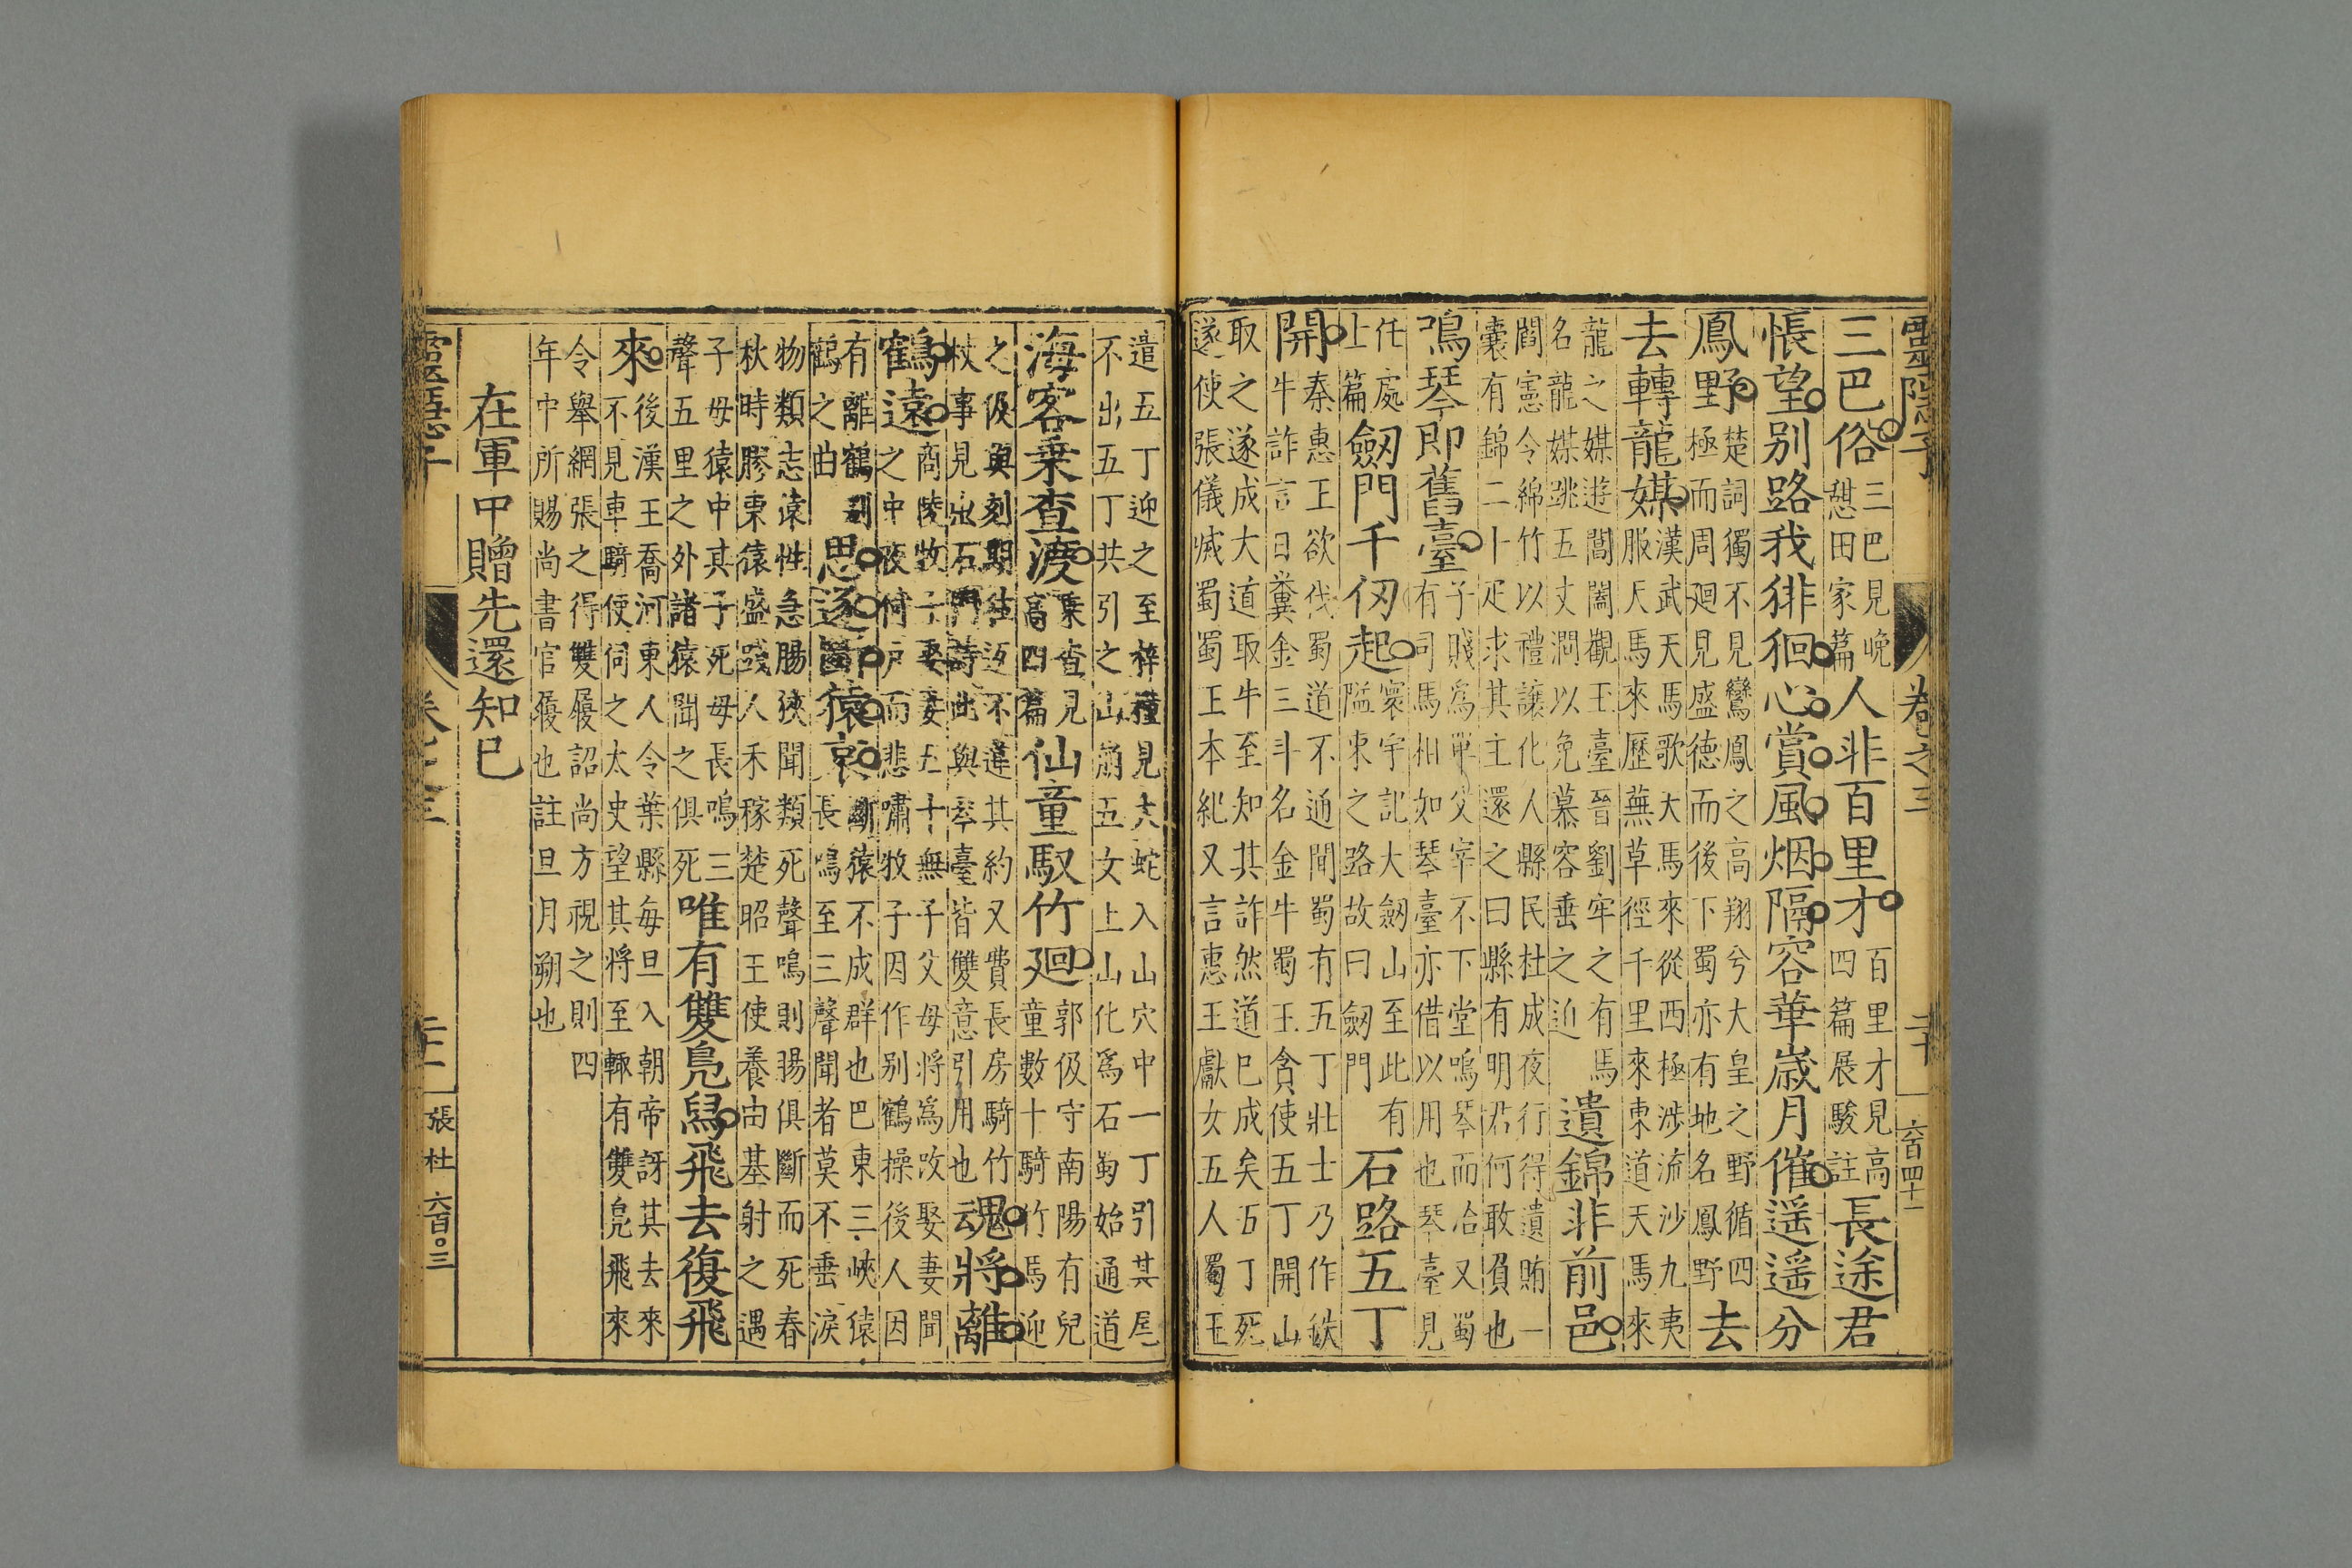 靈隱子 卷之三 二十 六百四十一
三巴俗三巴見晚憇田家篇人非百里才百里才見高四篇展駿註長途君
悵望别路我徘徊心賞風烟隔容華歲月催遥遥分
鳳野楚詞獨不見鸞鳳之高翔兮大皇之野循四極而周廻見盛德而後下蜀亦有地名鳳野去
去轉龍媒漢武天馬歌大馬來從西極涉流沙九夷服天馬來歷蕪草徑千里來東道天馬來
龍之媒遊閶闔觀玉臺晉劉牢之有馬名龍媒跳五丈澗以免慕容垂之迫遺錦非前邑
閻憲令綿竹以禮讓化人縣民杜成夜行得遺賄一囊有錦二十疋求其主還之曰縣有明君何敢負也
鳴琴即舊臺子賤爲單父宰不下堂鳴琴而治又蜀有司馬相如琴臺亦借以用也琴臺見
任處上篇劒門千仞起寰宇記大劒山至此有隘束之路故曰劒門石路五丁
開秦惠王欲伐蜀道不通聞蜀有五丁壯士乃作鉄牛詐言日糞金三斗名金牛蜀王貪使五丁開山
取之遂成大道取牛至知其詐然道已成矣五丁死遂使張儀滅蜀蜀王本紀又言惠王獻女五人蜀王
遣五丁迎之至梓橦見大蛇入山穴中一丁引其尾不出五丁共引之山崩五女上山化爲石蜀始通道
海客乗查渡乗查見高四篇仙童馭竹廻郭伋守南陽有兒童數十騎竹馬迎
之伋與刻期往返不違其約又費長房騎竹杖事見出石門詩此與琴臺皆雙意引用也魂將離
鶴遠商陵牧子娶妻五十無子父母將爲改娶妻聞之中夜倚戸而悲嘯牧子因作别鶴操後人因
有離鶴别鶴之曲思逐斷猿哀斷猿不成群也巴東三峽猿長鳴至三聲聞者莫不垂淚
物類志猿性急腸狹聞類死聲鳴則腸俱斷而死春秋時膠東猿盛踐人禾稼楚昭王使養由基射之遇
子母猿中其子死母長鳴三聲五里之外諸猿聞之俱死唯有雙鳧舄飛去復飛
來後漢王喬河東人令葉縣每旦入朝帝訝其去來不見車騎使伺之太史望其將至輒有雙鳧飛來
令舉網張之得雙履詔尚方視之則四年中所賜尚書官履也註旦月朔也
在軍中贈先還知已
靈隱子 卷之三 二十一 張杜 六百〇三